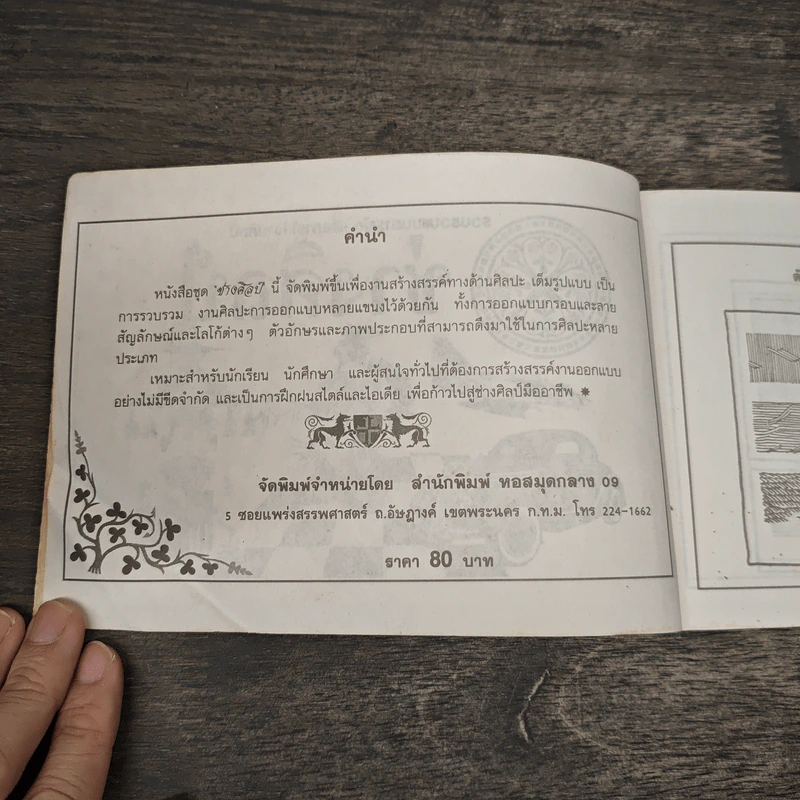 คำนำ
หนังสือชุด "ช่างศิลป์" นี้ จัดพิมพ์ขึ้นเพื่องานสร้างสรรค์ทางด้านศิลปะ เต็มรูปแบบ เป็น
การรวบรวม งานศิลปะการออกแบบหลายแขนงไว้ด้วยกัน ทั้งการออกแบบกรอบและลาย
สัญลักษณ์และโลโก้ต่างๆ ตัวอักษรและภาพประกอบที่สามารถดึงมาใช้ในการศิลปะหลาย
ประเภท
เหมาะสำหรับนักเรียน นักศึกษา และผู้สนใจทั่วไปที่ต้องการสร้างสรรค์งานออกแบบ
อย่างไม่มีขีดจำกัด และเป็นการฝึกฝนสไตล์และไอเดีย เพื่อก้าวไปสู่ช่างศิลป์มืออาชีพ *
จัดพิมพ์จำหน่ายโดย สำนักพิมพ์ หอสมุดกลาง 09
5 ซอยแพร่งสรรพศาสตร์ ถ.อัษฎางค์ เขตพระนคร ก.ท.ม. โทร 224-1662
ราคา 80 บาท